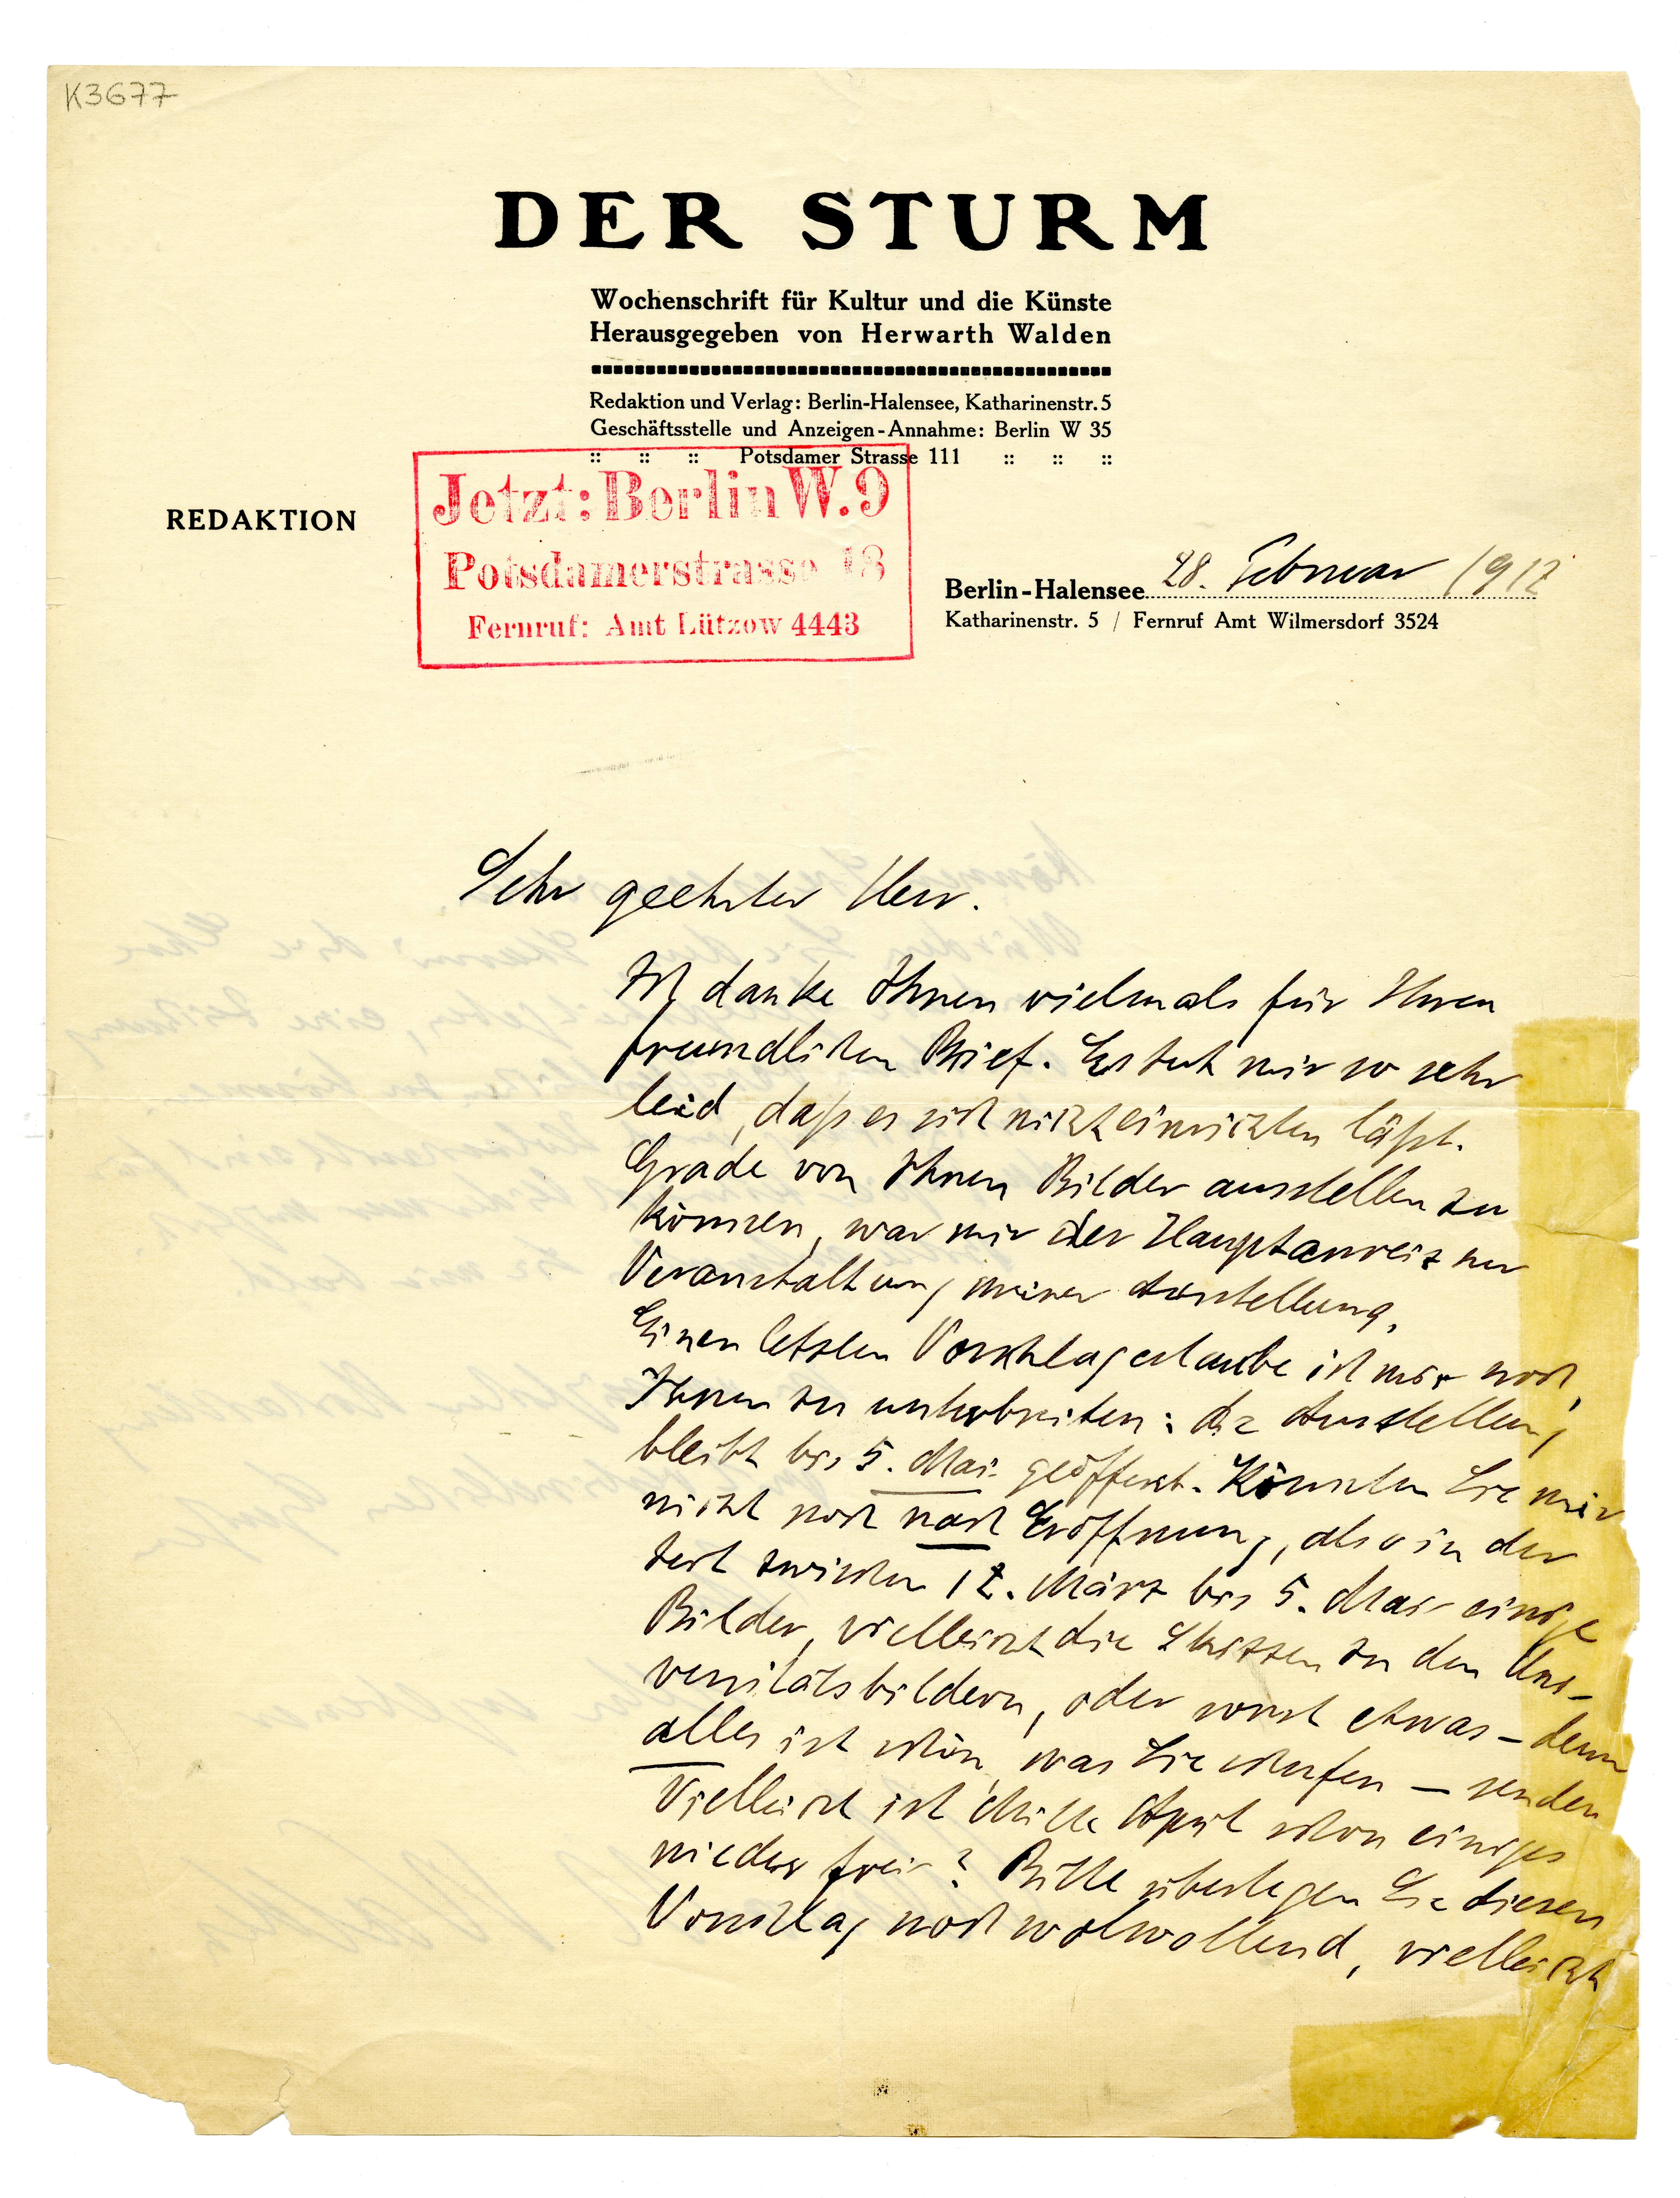 K3677
DER STURM
Wochenschrift für Kultur und die Künste
Herausgegeben von Herwarth Walden
Redaktion und Verlag: Berlin-Halensee, Katharinenstr. 5
Geschäftsstelle und Anzeigen-Annahme: Berlin W 35
:: :: :: Potsdamer Strasse 111 :: :: ::
Jetzt: Berlin W. 9
Potsdamerstrasse 18
Fernruf: Amt Lützow 4443
REDAKTION
Berlin-Halensee 28. Februar 1912
Katharinenstr. 5 / Fernruf Amt Wilmersdorf 3524
Sehr geehrter Herr.
Ich danke Ihnen vielmals für Ihren
freundlichen Brief. Es tut mir so sehr
leid, daß es sich nicht einrichten läßt.
Grade von Ihnen Bilder ausstellen zu
können, war mir der Hauptanreiz zur
Veranstaltung meiner Ausstellung.
Einen letzten Vorschlag erlaube ich mir noch,
Ihnen zu unterbreiten: die Ausstellung
bleibt bis 5. Mai geöffnet. Könnten Sie mir
nicht noch nach Eröffnung, also in der
Zeit zwischen 12. März bis 5. Mai einige
Bilder, vielleicht die Skizzen zu den Uni-
versitätsbildern, oder sonst etwas – denn
alles ist schön, was Sie schufen – senden
Vielleicht ist Mitte April schon einiges
wieder frei? Bitte überlegen Sie diesen
Vorschlag noch wolwollend, vielleicht